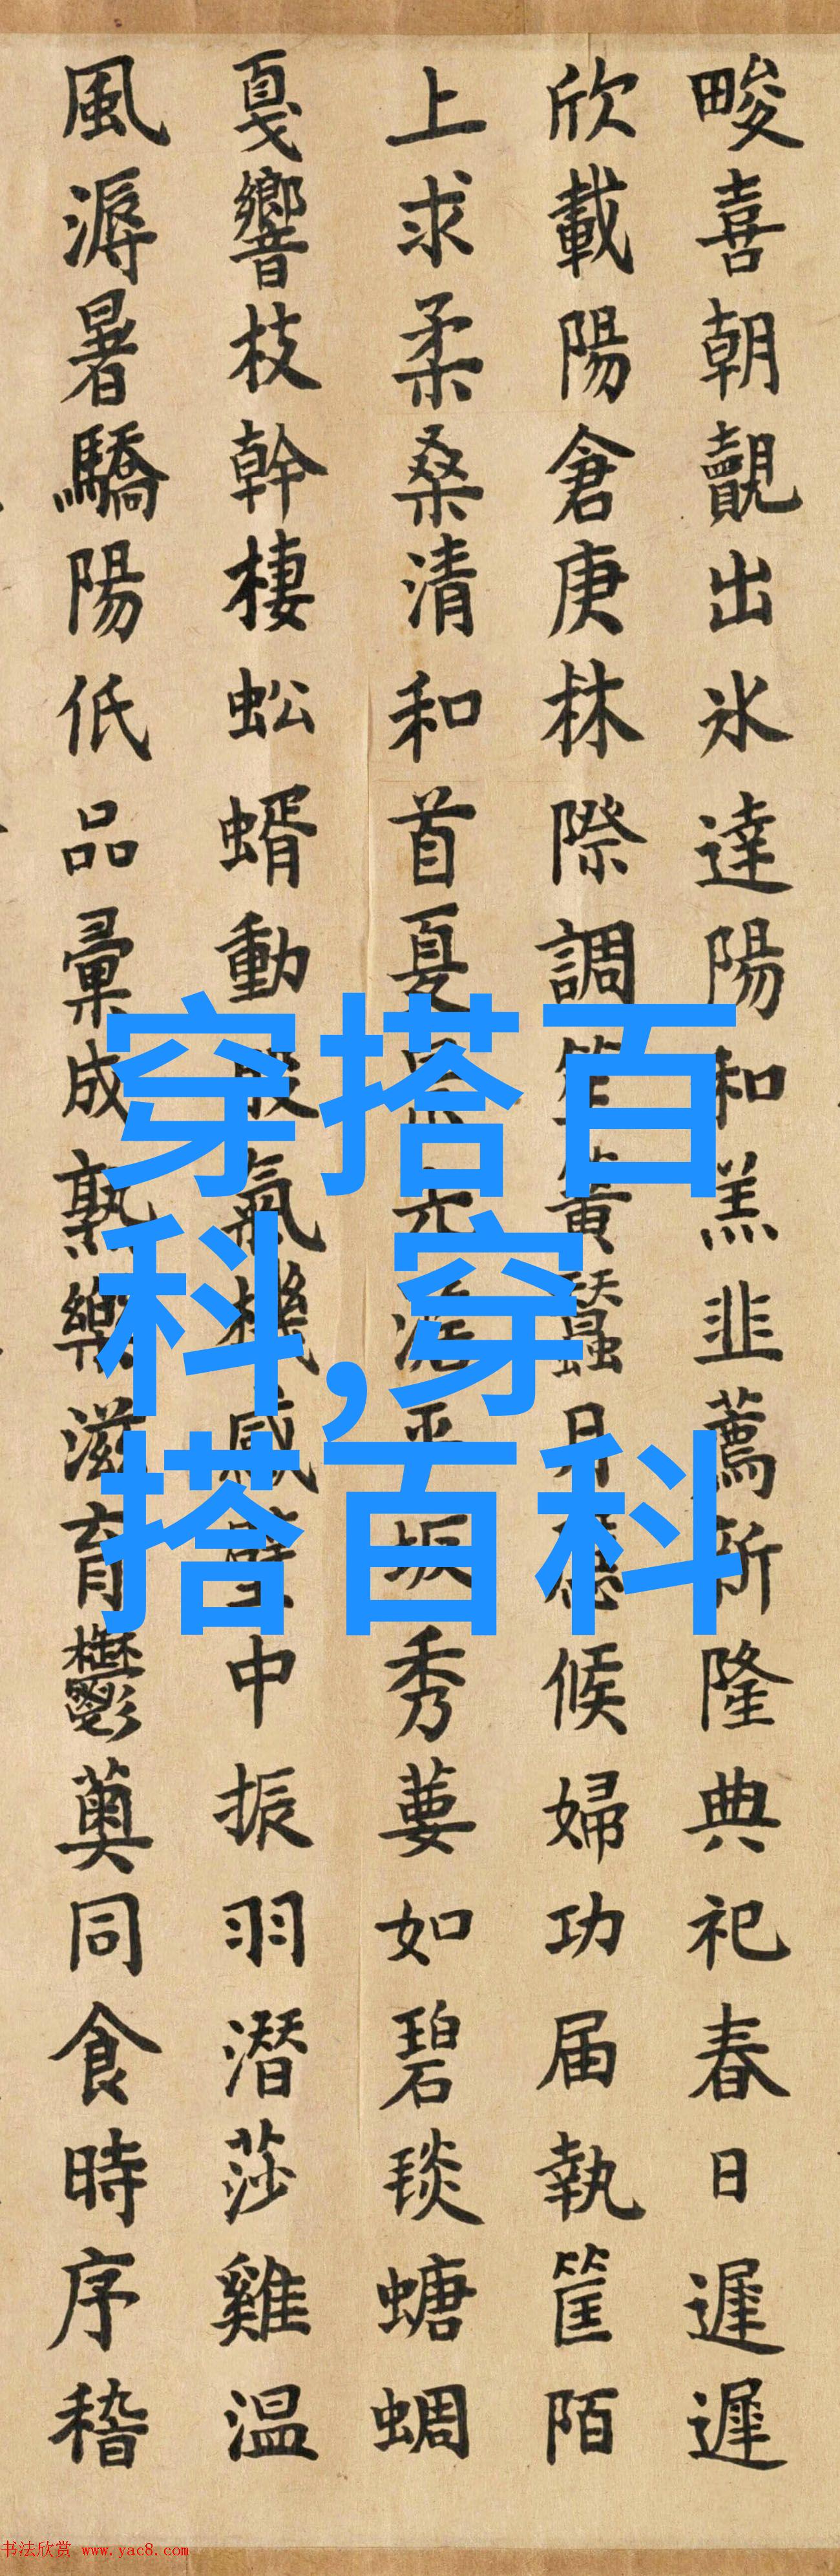 畯喜朝觀出氷達陽和羔韭薦新隆典祀春日遲遲
欣載陽倉庚林際調笙簧蠶月穩候婦功届執筐陌
上求柔桑清和首夏秀葽如碧琰螗蜩
戛響枝幹棲蚣蝑動股氣機感壁中振羽潛莎雞温
風溽暑驕陽低品彙成熟樂滋育鬱薁同食時序稽
穿搭百
科,穿
搭百科
书法欣赏 www.yac8.com